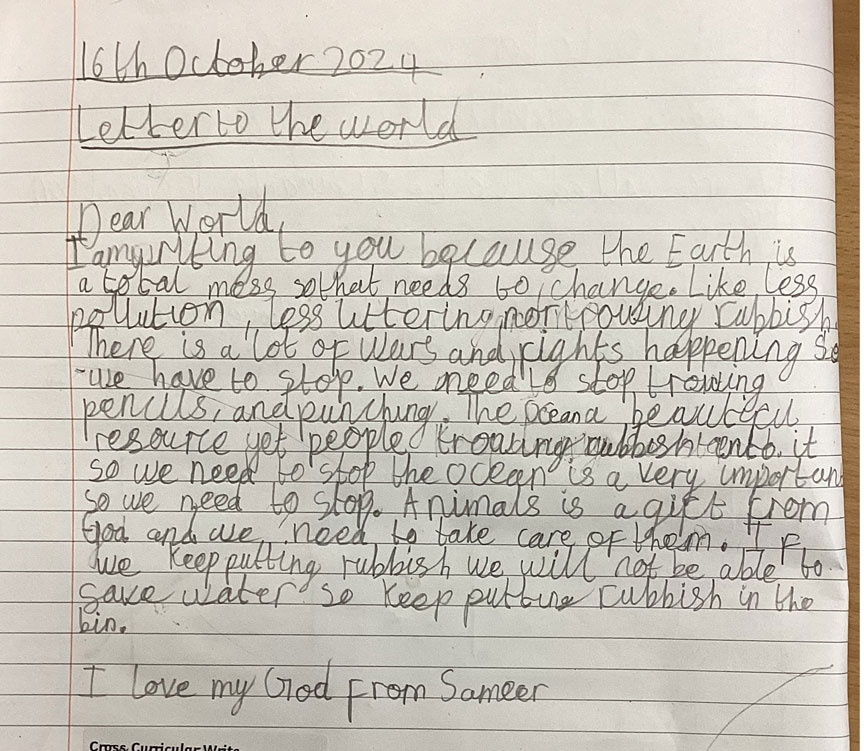 16th October 2024
Letter to the world
Dear World,
I am writing to you because the Earth is
a total mess so that needs to change. Like less
pollution, less littering, not trowing rubbish.
There is a lot of wars and rights happening so
we have to stop. We need to stop trowing
pencils, and punching. The Ocean a beautiful
resource yet people trowing rubbish into it
so we need to stop the ocean is a very importan
so we need to stop. Animals is a gift from
God and we need to take care of them. If
we keep putting rubbish we will not be able to
save water so keep putting rubbish in the
bin.
I love my God from Sameer
Cross Curricular Write